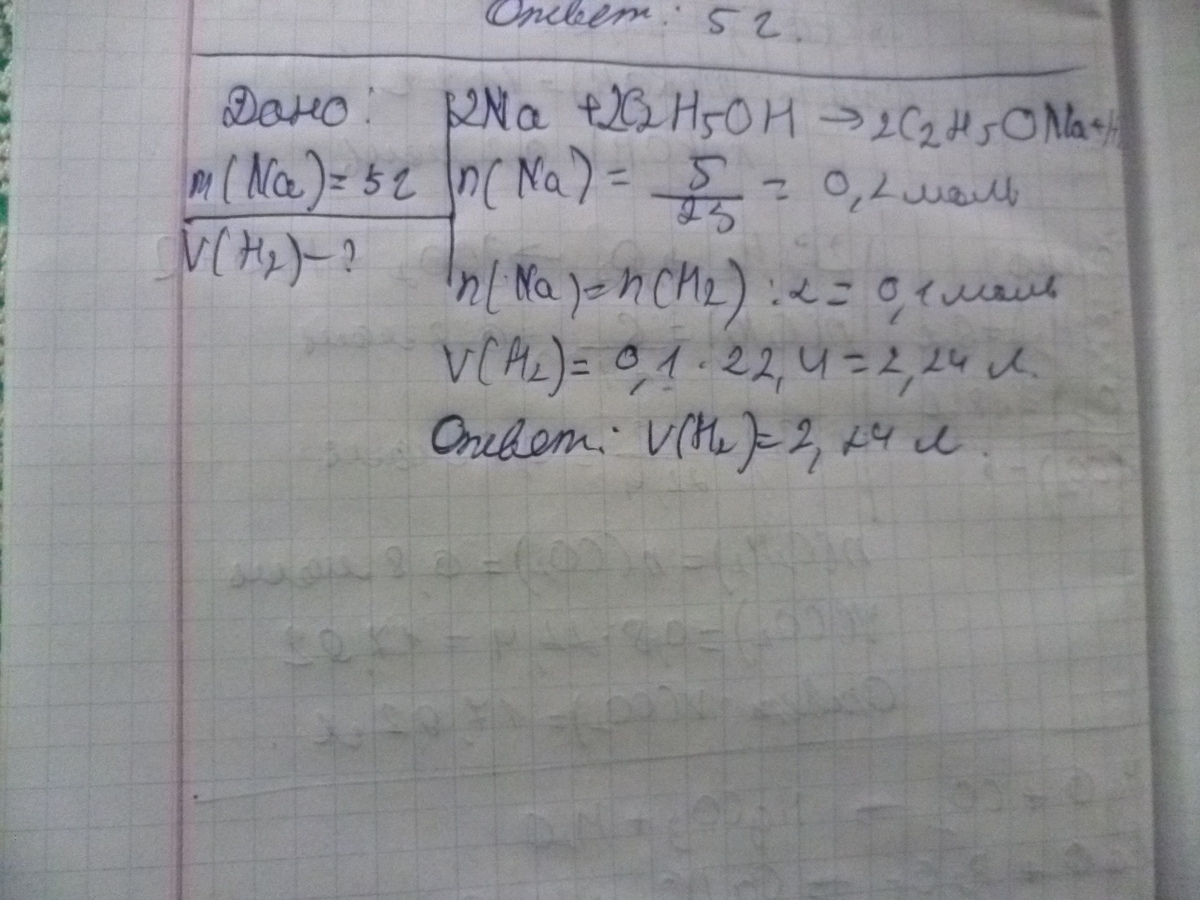 Ответ: 5 г.
Дано:
m(Na)=5г
V(H₂)-?
2Na +2C₂H₅OH → 2C₂H₅ONa+H
n(Na) = 5/23 = 0,2 моль
n(Na)=n(H₂) :2 = 0,1 моль
V(H₂)= 0,1 · 22,4 = 2,24 л.
Ответ: V(H₂)=2,24 л.